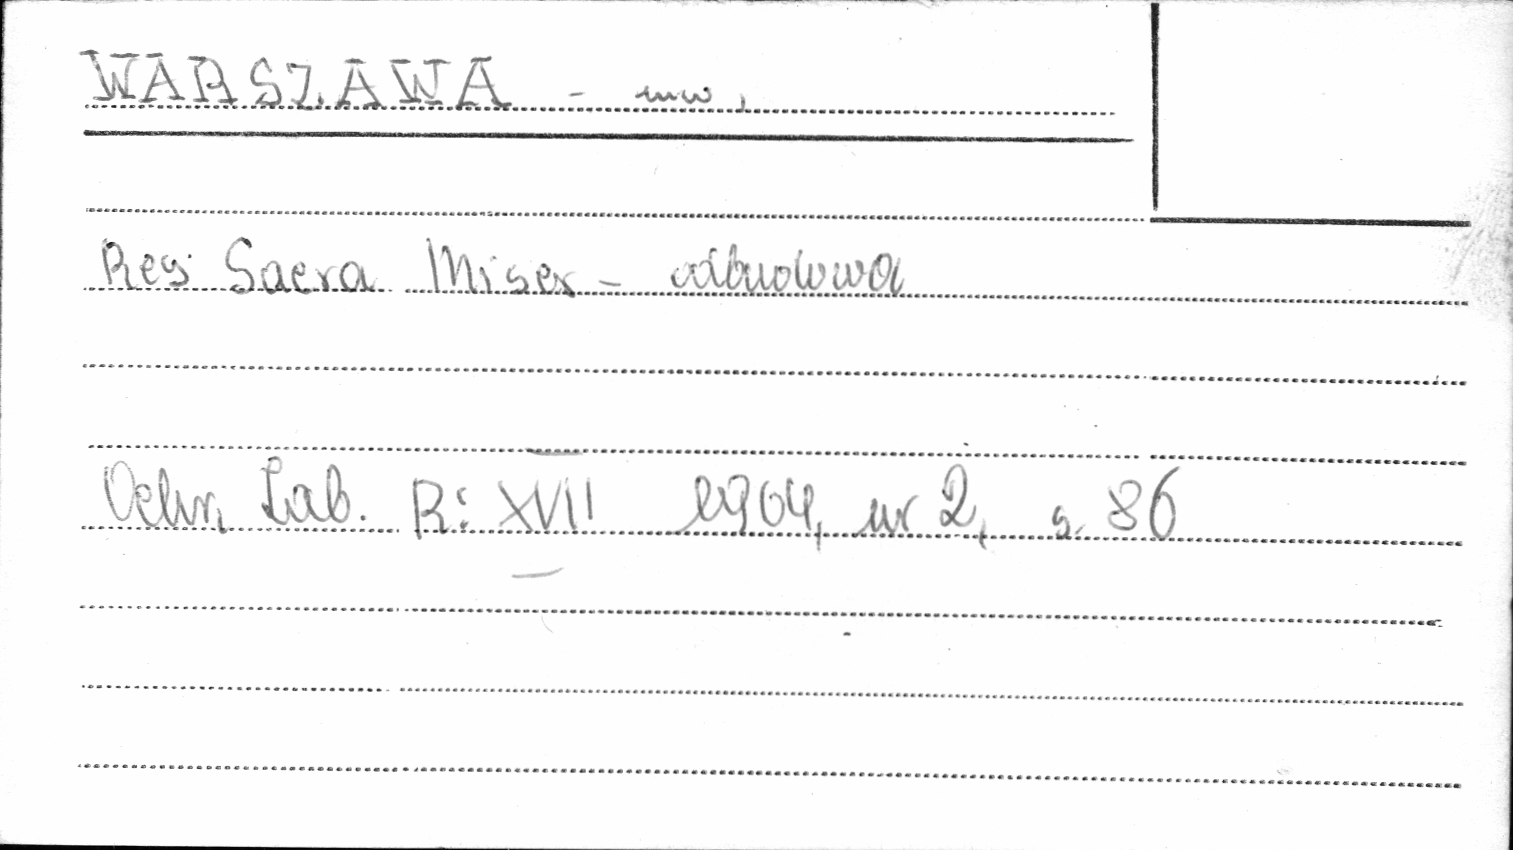 WARSZAWA - mw,
Res Sacra Miser - odbudowa
Ochr Zab. R: XVII 1964, nr 2, s. 86